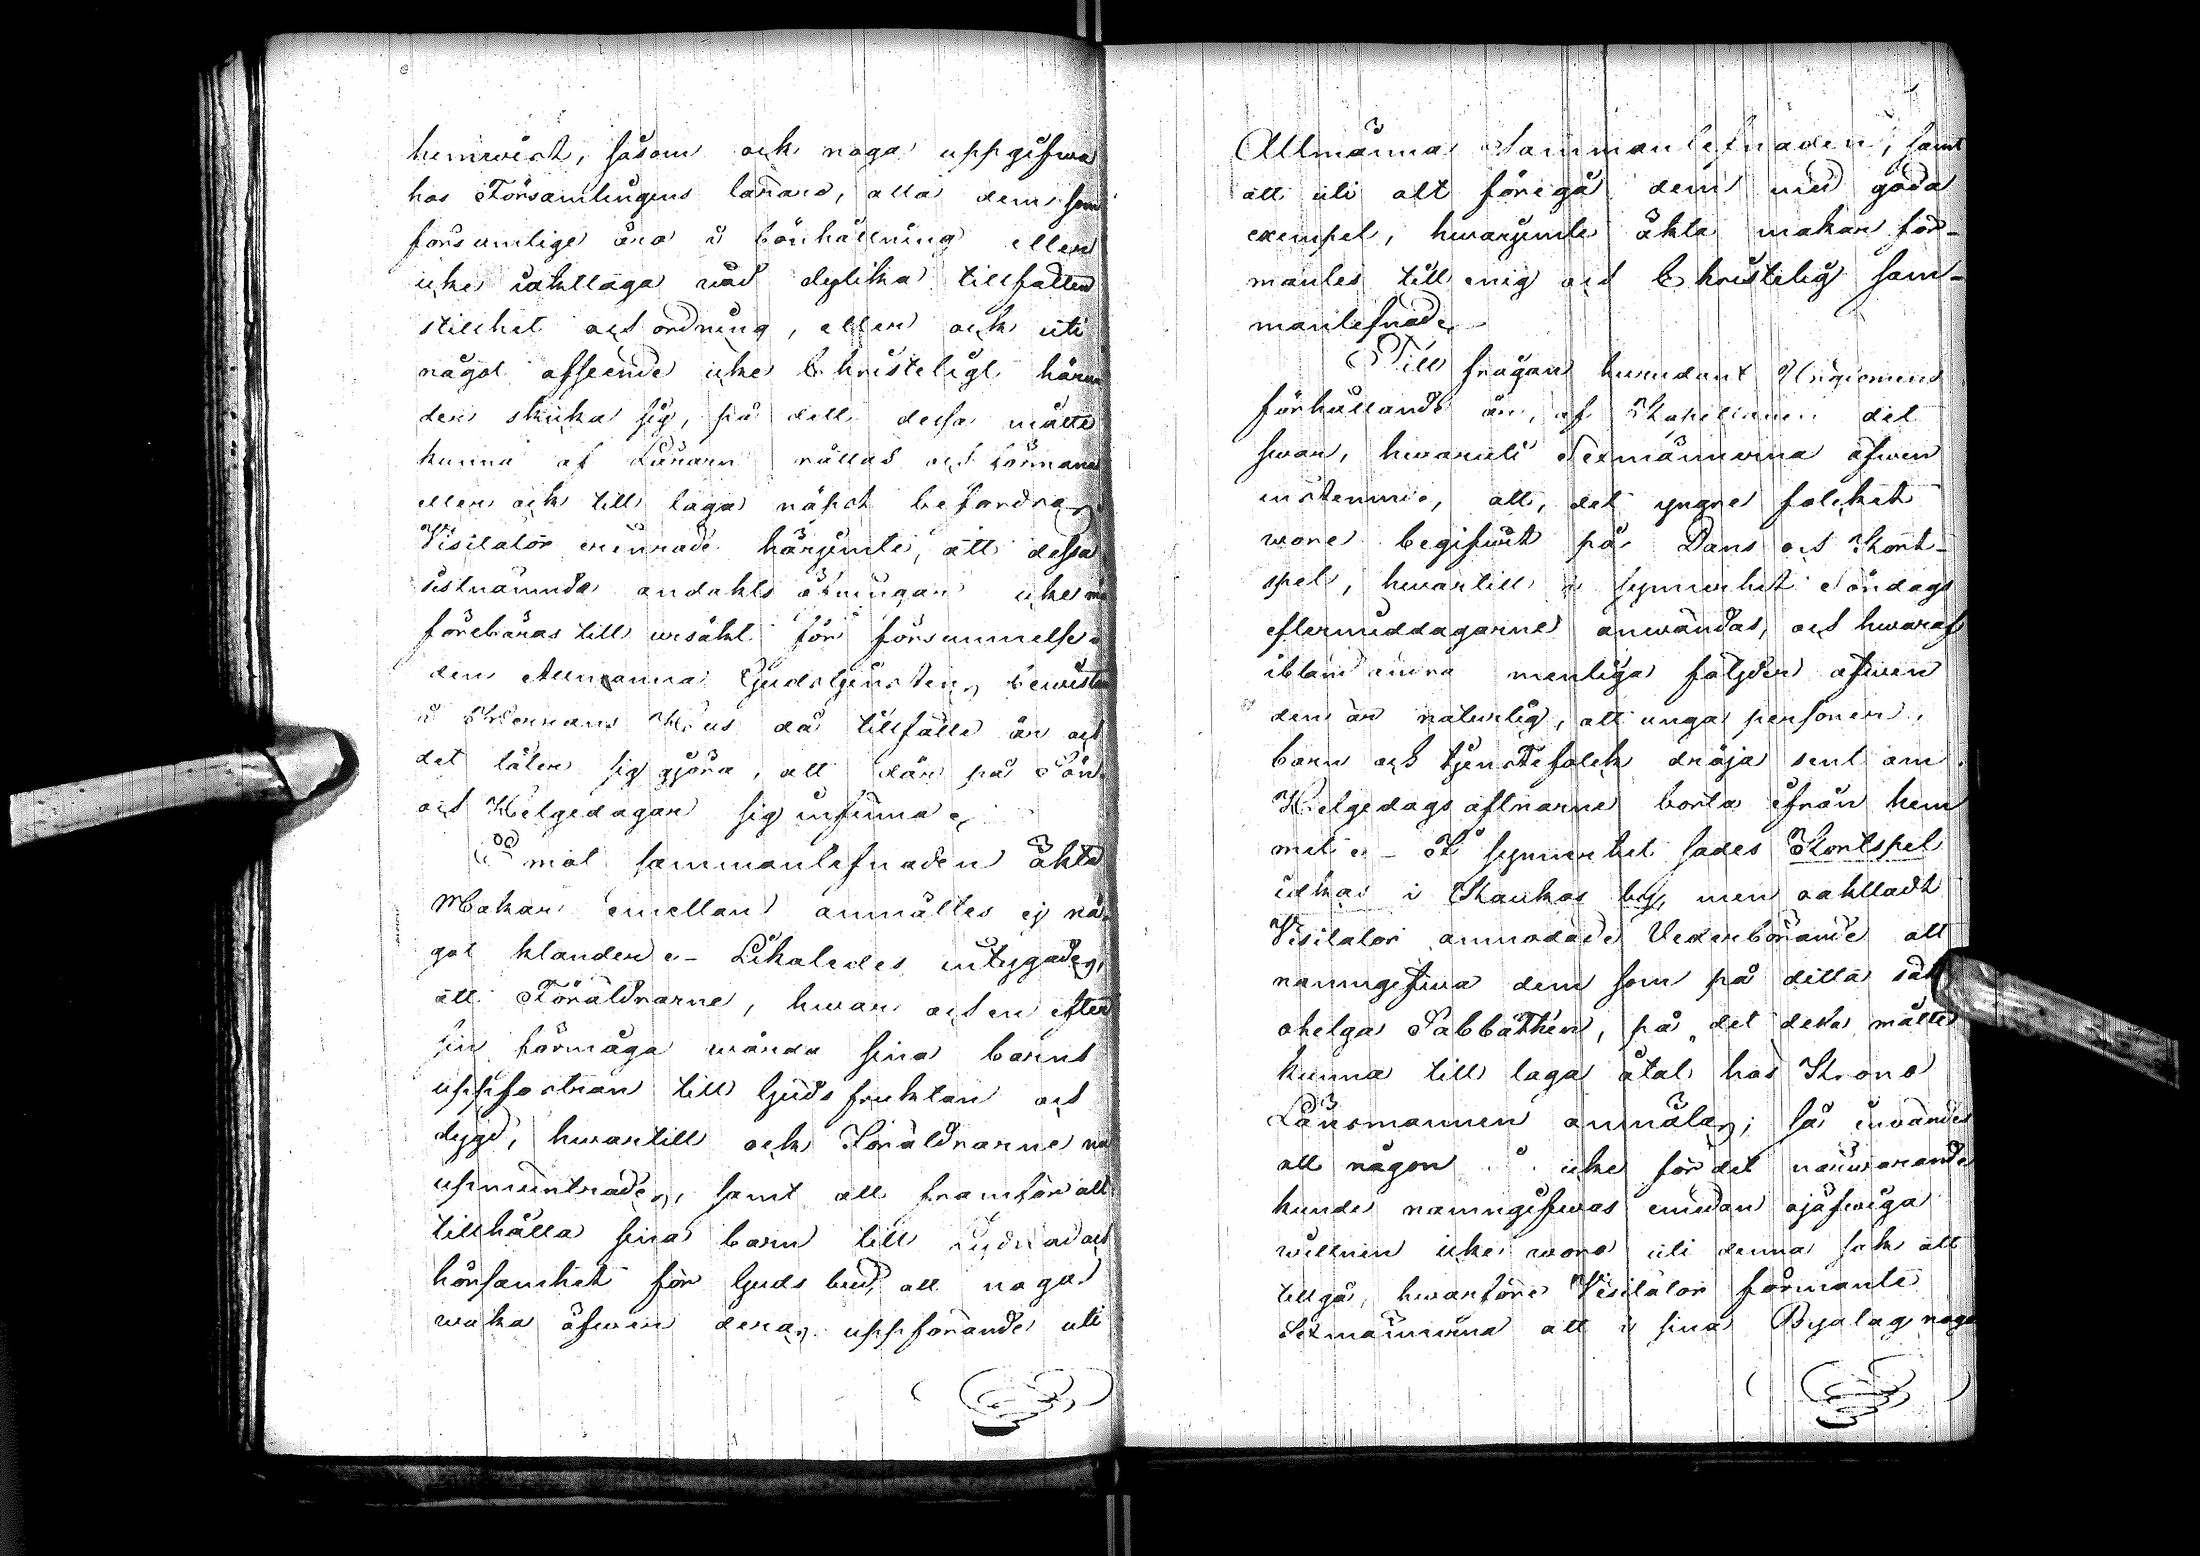 hemwist, såsom ock noga uppgifwa
hos Församlingens lärare, alla dem som
försumlige äro i bönhållning eller
icke iakttaga wid dylika tillfällen
stillhet och ordning, eller ock uti
något afseende icke Christeligt härun
der skicka sig, på dett dessa måtte
kunna af Läraren rättas och förmanas
eller ock till laga näpst befordras.
Visitator erinrade härjemte, att dessa
sistnämnde andakts öfningar icke må
förebäras till ursäkt för försummelse
den Allmänna Gudstjensten, bewistan
i Herrans Hus då tillfälle är och
det låter sig göra, att där på Sön
och Helgedagar sig infinna.
I mot sammanlefnaden äkta
Makar emellan anmältes ej nå-
got klander. Likaledes intygades,
att Föräldrarne, hwar och en efter
sin förmåga wårda sina barns
uppfostran till Guds fruktan och
dygd, hwartill ock Föräldrarne nu
upmuntrades, samt att framför allt
tillhålla sina barn till lydnad och
hörsamhet för Guds bud, att noga
waka äfwen deras uppförande uti
Allmänna Sammanlefnaden, samt
att uti alt föregå dem med goda
exempel, hwarjemte äkta makar för-
mantes till enig och Christelig sam-
manlefnad.
Till frågan hurudant Ungdomens
förhållande är, af Kapellanen det
swar, hwaruti Sexmännerna äfwen
instemde, att, det yngre folcket
wore begifwit på Dans och Kort-
spel, hwartill i synnerhet Söndags
eftermiddagarne anwändas, och hwaraf
ibland andra menliga följder äfwen
den är naturlig, att unga personer,
barn och tjenstefolck dröja sent om
Helgedags aftnarne borta ifrån hem
met. I synnerhet sades Kortspel
idkas i Kaukas by, men oakttadt
Visitator anmodade Vederbörande att
namngifwa dem som på detta sätt
ohelga Sabbathen, på det desse måtte
kunna till laga åtal hos Krono
Länsmannen anmälas; så inwändes
att någon icke för det närwarande
kunde namngifwas emedan ojäfwiga
wittnen icke woro uti denna sak att
tillgå, hwarföre Visitator förmante
Sexmännerna att i sina Byalag noga